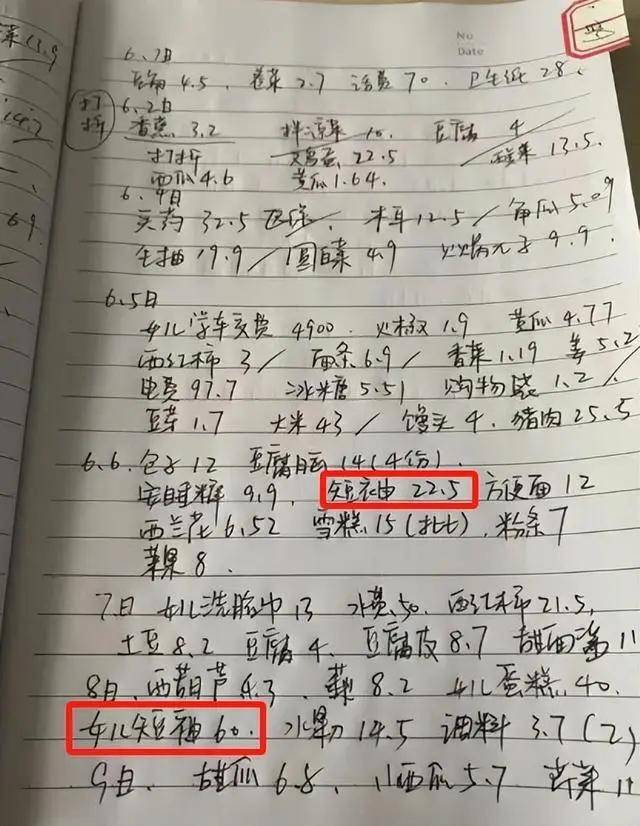 No
Date
菜 13.9
6.1日
4.5, 2.7 话费 70. 卫生纸 28.
打折
6.2日
香蕉 3.2 拌凉菜 10. 豆腐 4
打折 鸡蛋 22.5 酸菜 13.5.
西瓜 4.6 黄瓜 1.64.
6.4日
买药 32.5 医保, 木耳 12.5 / 角瓜 5.09
生抽 19.9 / 圆白菜 4.9 火锅丸子 9.9.
6.5日
女儿学车交费 4900. 1.9 黄瓜 4.77
西红柿 3 / 面条 6.9 / 香菜 1.19 姜 5.2
电费 97.7 冰糖 5.51 购物袋 1.2 /
豆芽 1.7 大米 43 / 馒头 4. 猪肉 25.5
6.6. 包子 12 豆腐脑 14 (4份).
9.9. 短袖 22.5 方便面 12
西兰花 6.52 雪糕 15 (批). 粉条 7
苹果 8.
7日 女儿洗脸巾 13 水费 50. 西红柿 21.5,
土豆 8.2 豆腐 4. 豆腐皮 8.7 甜面酱 11
8日. 西葫芦 4.3. 8.2 女儿蛋糕 40.
女儿短袖 60. 水果 14.5 调料 3.7 (2)
9日. 甜瓜 6.8. 小西瓜 5.7 11